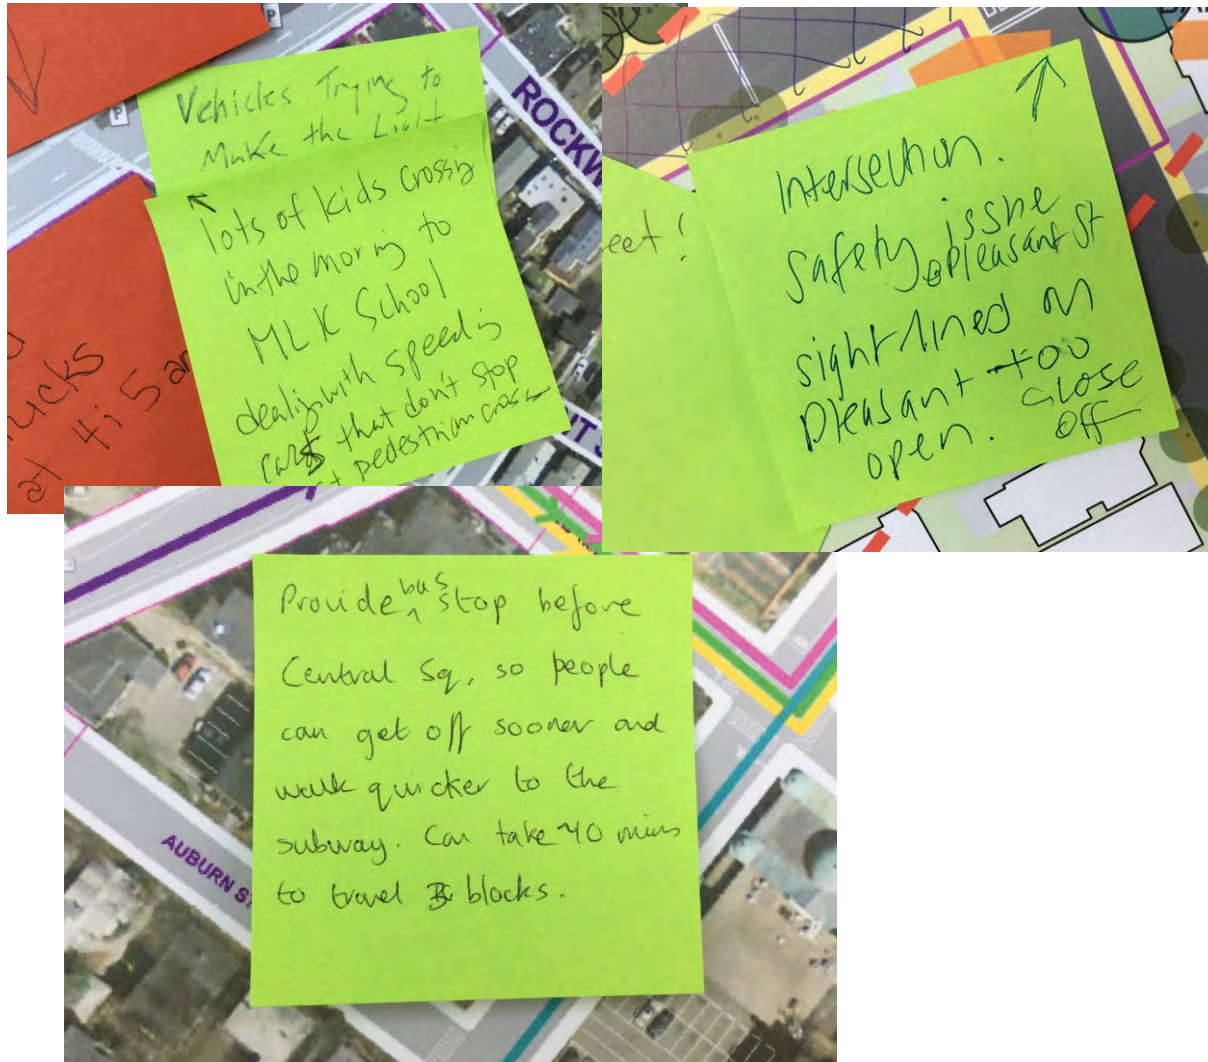 P
Vehicles Trying to
Make the Light
ROCKW
lots of kids crossing
in the moring to
MLK School
dealing with speeding
cars that don't stop
pedestrian cross
ucks
at 4 i 5 a
eet!
Intersection.
safety issue
@ pleasant St
sight lines on
pleasant too
open. close
off
Provide bus stop before
Central Sq, so people
can get off sooner and
walk quicker to the
subway. Can take
mins
to travel
blocks.
AUBURN ST